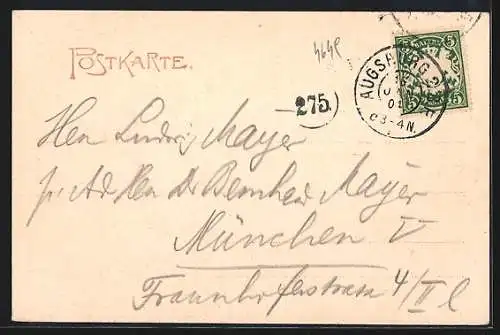 POSTKARTE.
464R
275.
BAYERN
5 5
AUGSBURG 2
01
3-4N.
Herr Ludwig Mayer
pr. Adr. Herr Dr. Bernheim Mayer
München V
Fraunhoferstrasse 4/II l